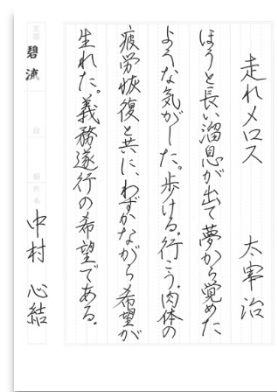 走れメロス 太宰治
ほうと長い溜息が出て夢から覚めた
ような気がした。歩ける。行こう。肉体の
疲労恢復と共に、わずかながら希望が
生れた。義務遂行の希望である。
碧流 中村 心結